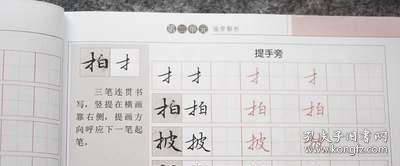 第三单元 偏旁解析
提手旁
拍 扌
三笔连贯书
写，竖提在横画
靠右侧，提画方
向呼应下一笔起
笔。
扌 扌 扌 扌
拍 拍 拍 拍
披 披 披 披
孔夫子旧书网